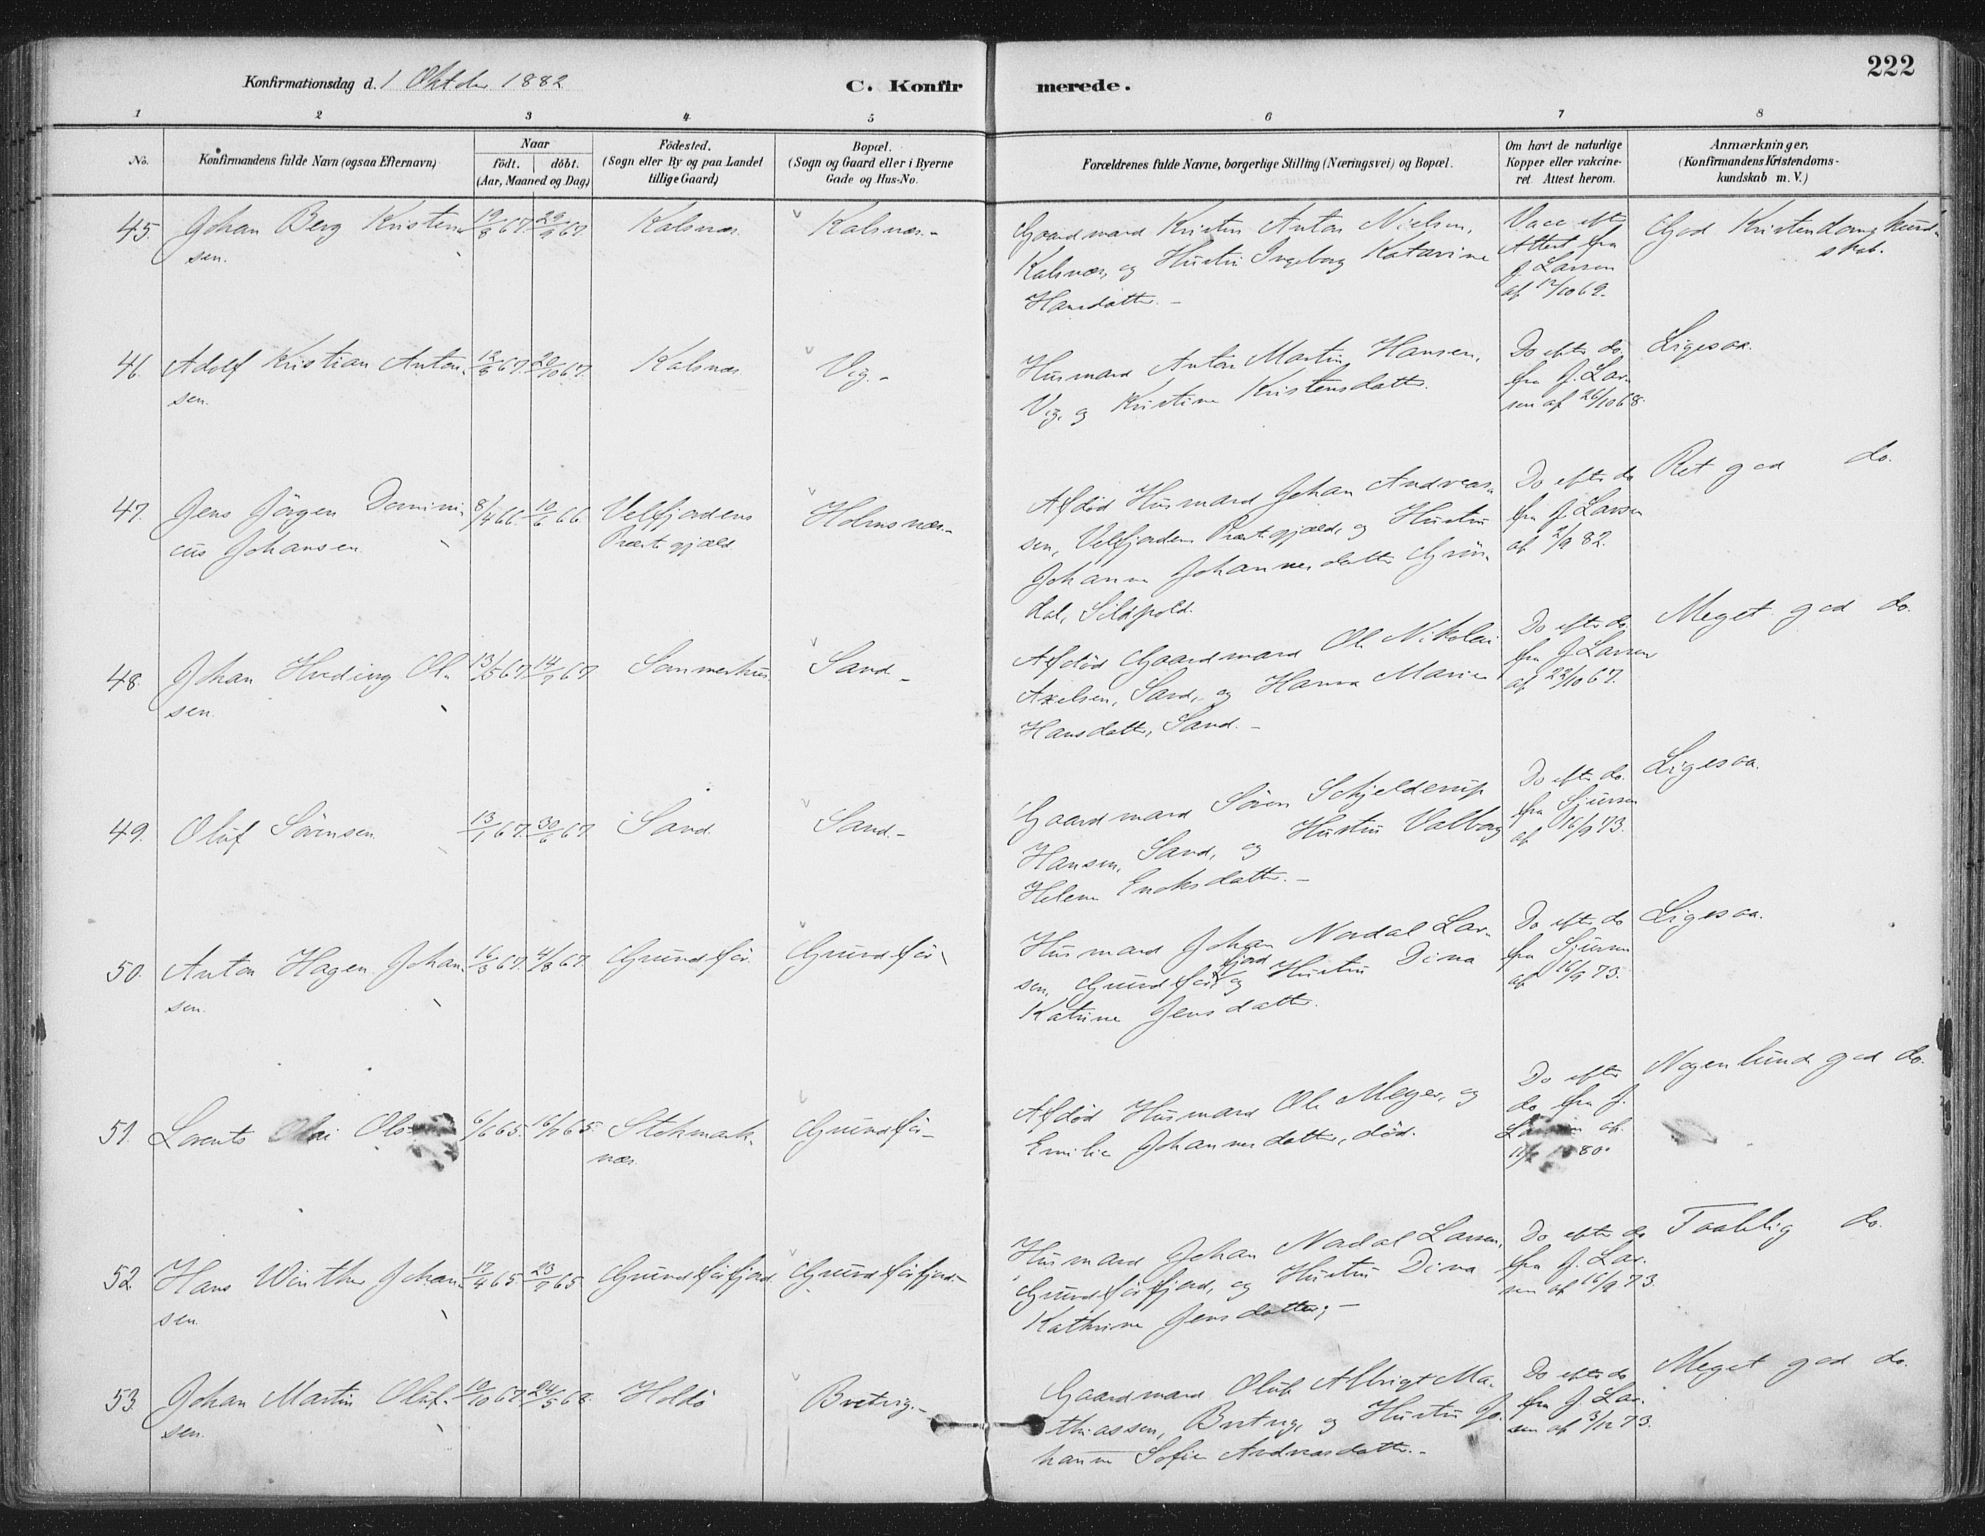 222
Konfirmationsdag d. 1 Oktober 1882
C. Konfirmerede.
1 2 3 4 5 6 7 8
No.
Konfirmandens fulde Navn (ogsaa Efternavn)
Naar
födt. döbt.
(Aar, Maaned og Dag)
Födested.
(Sogn eller By og paa Landet
tillige Gaard)
Bopæl.
(Sogn og Gaard eller i Byerne
Gade og Hus-No.
Forældrenes fulde Navne, borgerlige Stilling (Næringsvei) og Bopæl.
Om havt de naturlige
Kopper eller vakcine-
ret. Attest herom.
Anmærkninger,
(Konfirmandens Kristendoms-
kundskab m. V.)
45. Johan Berg Kristen-
sen.
19/8 67. 29/9 67.
Kalsnæs.
Kalsnæs.-
Gaardmand Kristen Anton Nielsen,
Kalsnæs, og Hustru Ingeborg Katarine
Hansdatter. -
Vacc. efter
Attest fra
J. Larsen
af 12/10 69.
God Kristendomskund-
skab.
46. Adolf Kristian Anton-
sen.
12/8 67. 20/10 67.
Kalsnæs
Vig.-
Husmand Anton Martin Hansen,
Vig, og Kristine Kristensdatter.
Do efter do.
fra J. Lar-
sen af 26/10 68.
Ligesaa.
47. Jens Jörgen Domini-
cus Johansen.
8/4 66. 10/6 66.
Velfjordens
Præstegjæld.
Holmsnæs.-
Afdöd Husmand Johan Andreas-
sen, Velfjordens Præstegjæld, og Hustru
Johanna Johannesdatter Grön-
dal, Sildpold.
Do efter do
fra J. Larsen
af 2/9 82.
Ret god do.
48. Johan Hveding Ol-
sen.
13/5 67. 14/7 67.
Sommerhus
Sand-
Afdöd Gaardmand Ole Nikolai
Axelsen, Sand, og Hanna Marie
Hansdatter, Sand.-
Do efter do.
fra J. Larsen
af 22/10 67.
Meget god do.
49. Oluf Sörensen.
13/1 67. 30/6 67.
Sand.
Sand.-
Gaardmand Sören Schjelderup
Hansen, Sand, og Hustru Valborg
Helene Enoksdatter.-
Do efter do.
fra Sjursen
af 16/9 73.
Ligesaa.
50. Anton Hagen Johan-
sen.
16/3 67. 4/8 67.
Grundför.
Grundför.
Husmand Johan Nordal Lar-
sen, Grundför fjord og Hustru Dina
Katrine Jensdatter.
Do efter do
fra Sjursen
af 16/9 73.
Ligesaa.
51. Lorents Olai Ols
6/6 65. 16/7 65.
Stokmark-
næs.
Grundför-
Afdöd Husmand Ole Meyer, og
Emilie Johannesdatter, död.
Do efter
do fra J.
Larsen af
80.
Nogenlunde god do.
52. Hans Winther Johan-
sen.
12/4 65. 23/7 65.
Grundförfjord.
Grundförfjord.-
Husmand Johan Nordal Larsen,
Grundförfjord, og Hustru Dina
Kathrine Jensdatter,-
Do efter do
fra J. Lar-
sen af 16/9 73.
Taalelig do.
53. Johan Martin Oluf-
sen.
10/10 67. 24/5 68.
Holdö
Bretvig.-
Gaardmand Oluf Albrigt Ma-
thiassen, Bretvig, og Hustru Jo-
hanne Sofie Andreasdatter.-
Do efter do
fra J. Lar-
sen af 3/12 73.
Meget god do.